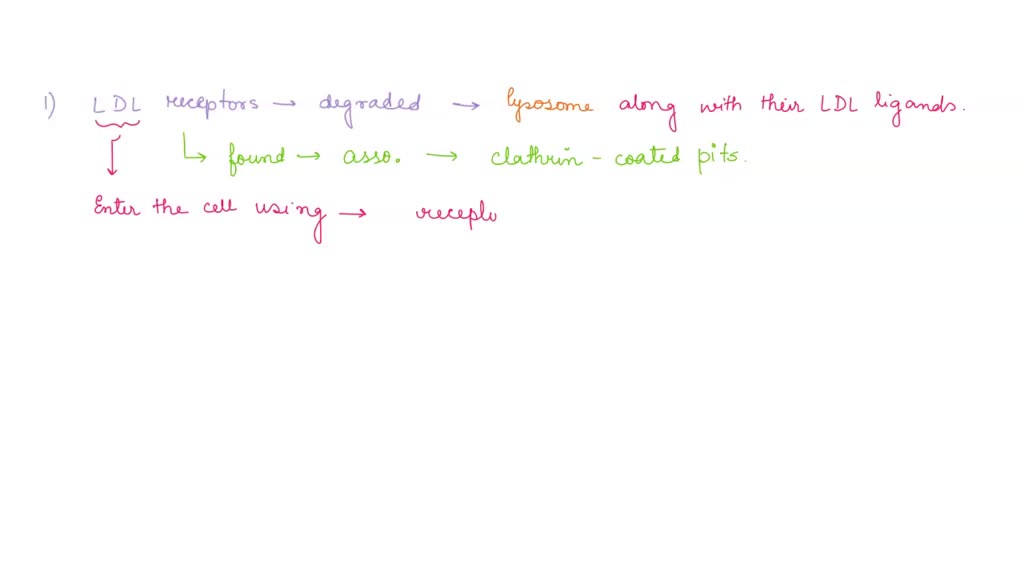 1) LDL receptors → degraded → lysosome along with their LDL ligands.
↳ found → asso. → clathrin - coated pits.
Enter the cell using → receplo